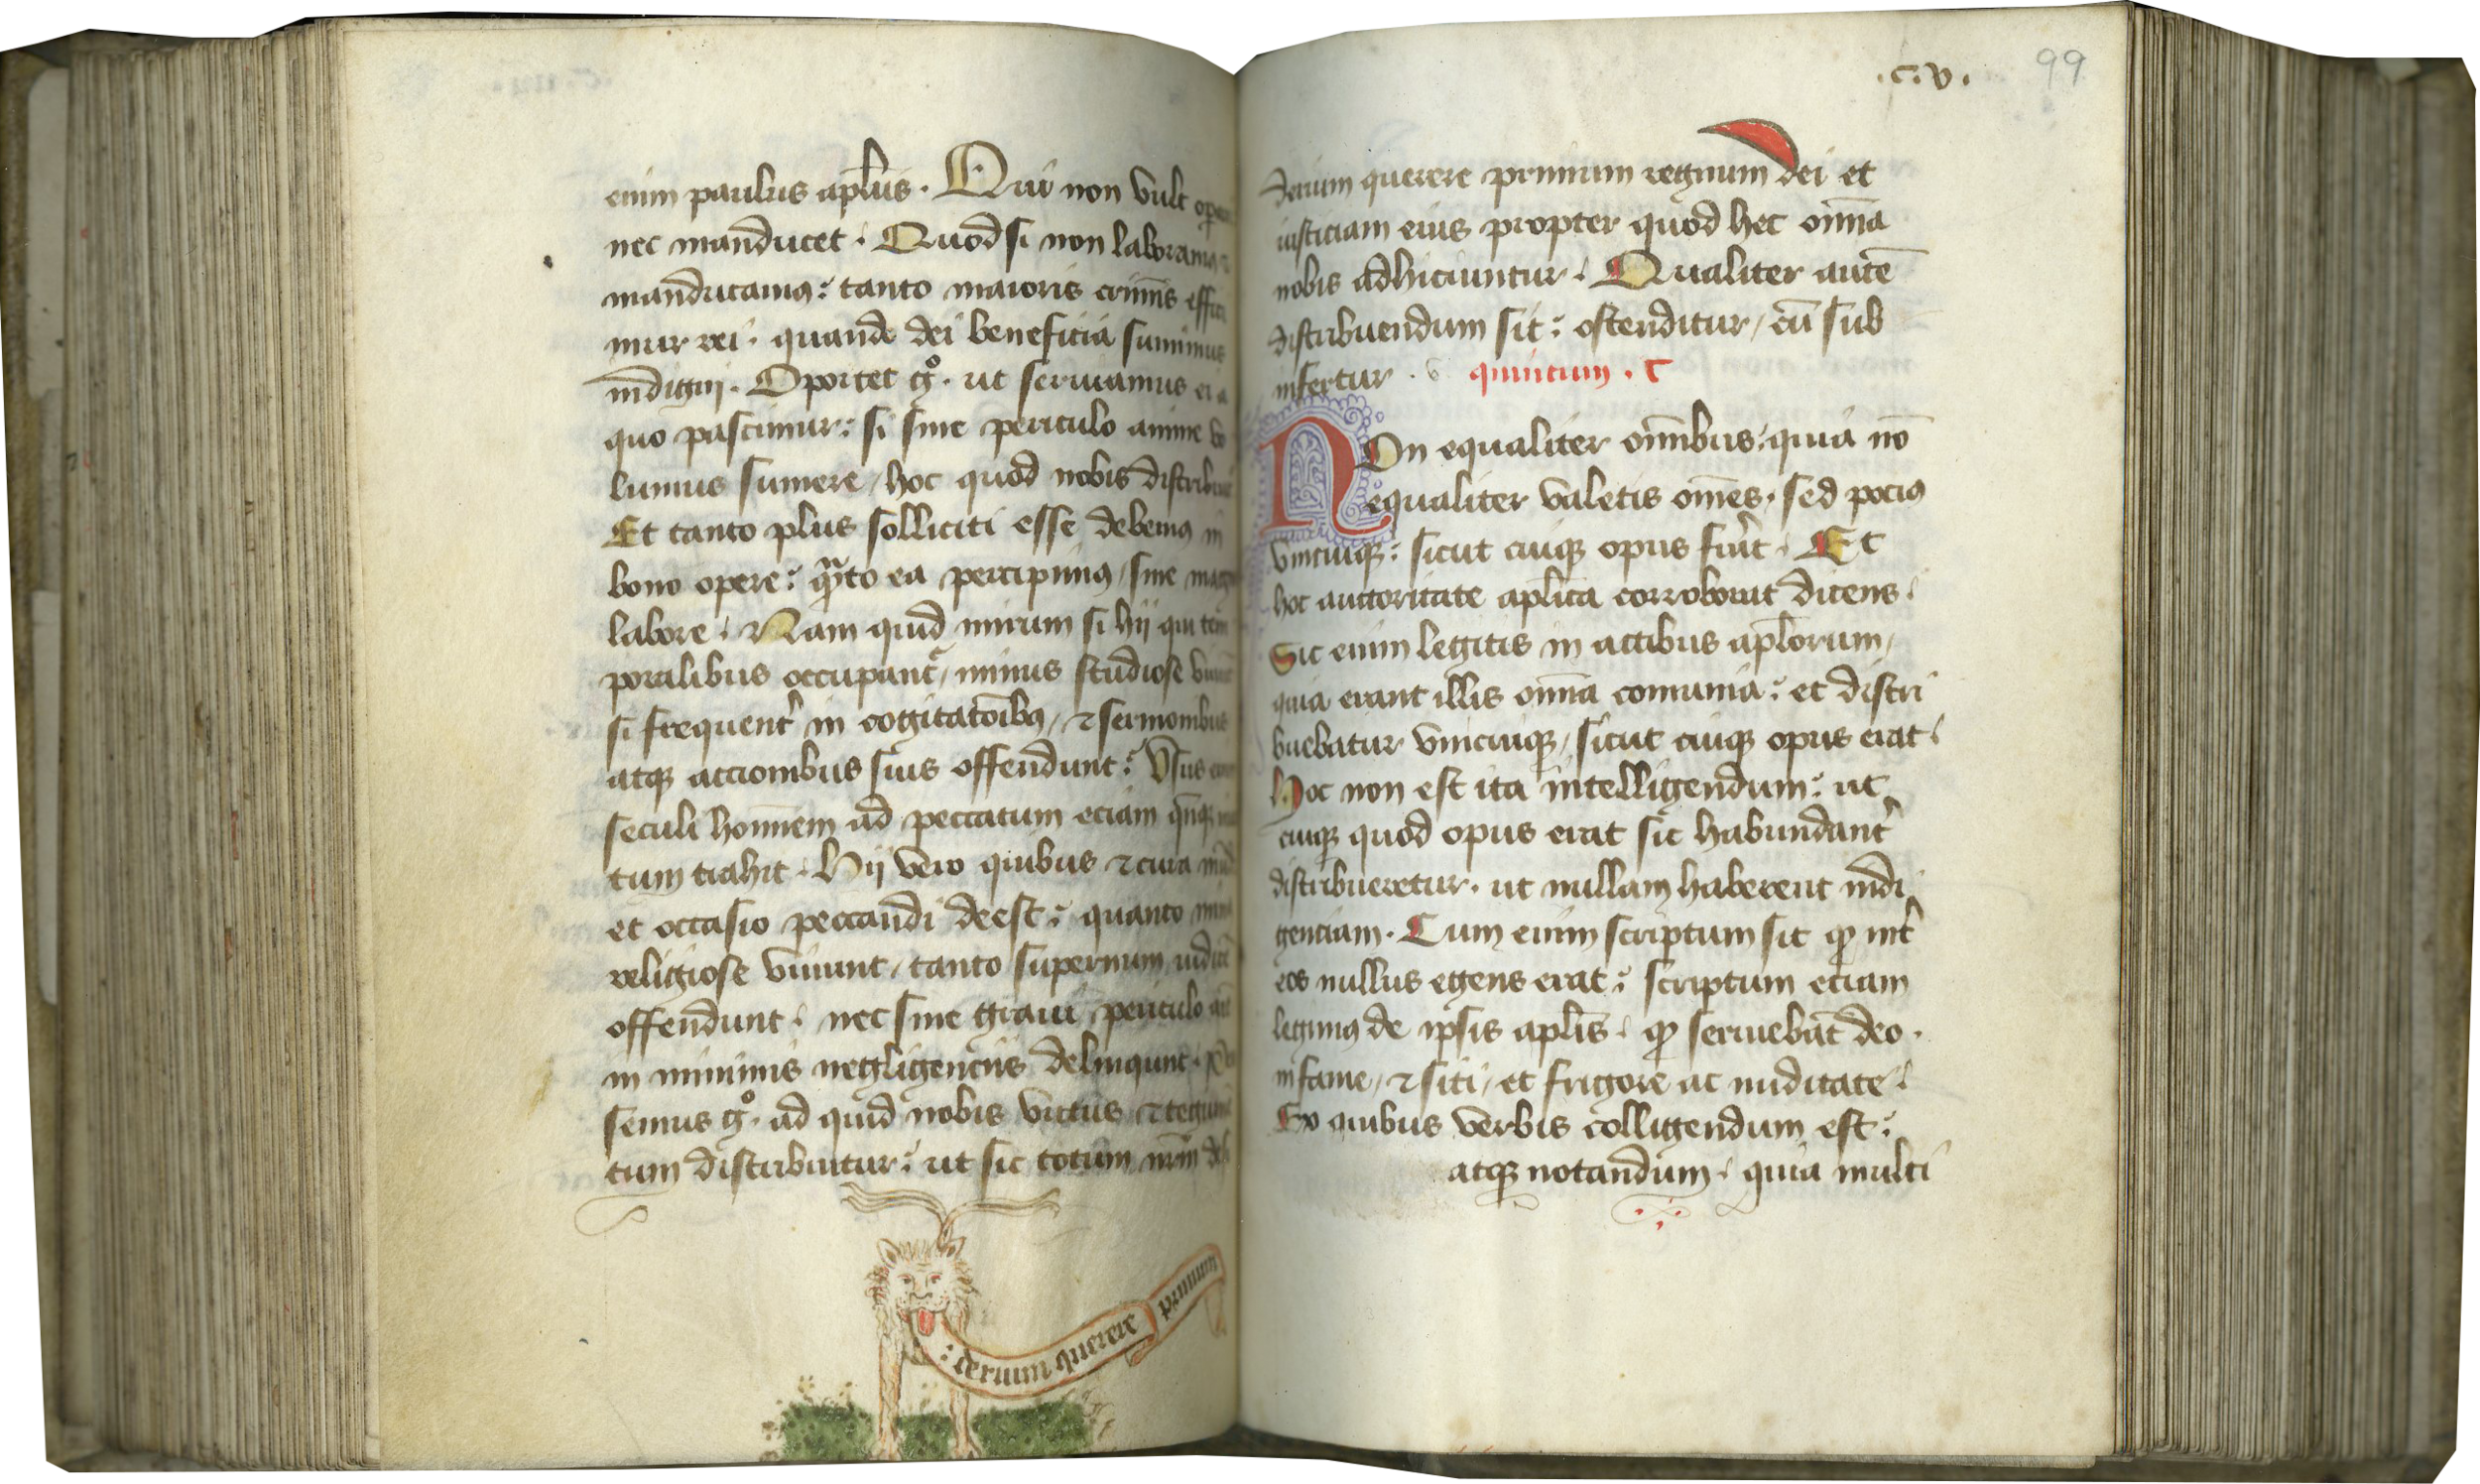 enim paulus apl̄us. Qui non vult
nec manducet. Quod si non laboram9
manducam9: tanto maioris crimīs effici
mur rei. quando dei beneficia sumimus
indigni. Oportet gͦ. ut seruiamus ei a
quo pascimur: si sine periculo anime vo
lumus sumere / hoc quod nobis distribui
Et tanto plus solliciti esse debem9 in
bono opere: qͣ̄to ea percipim9 / sine mag
labore. Nam quid mirum si hij qui tem
poralibus occupant᷑, minus studiose viuūt
si frequent᷑ in cogitatōib9, ⁊ sermonibus
atqꝫ accionibus suis offendunt: Vsus
seculi homīem ad peccatum eciam
tum trahit. Hij vero quibus ⁊ cura
et occasio peccandi deest: quanto
religiose viuunt, tanto supernum iudicē
offendunt. nec sine graui periculo
in minimis negligencijs delinqunt.
semus gͦ. ad quid nobis victus ⁊ tegumē
tum distribuitur: ut sic totum nr̄m
: derium querere primum
.c.v. 99
derium querere primum regnum dei et
iusticiam eius propter quod hec om̄ia
nobis adhiciuntur. Qualiter autē
distribuendum sit: ostenditur, cū sub
infertur. v quintum. c
Non equaliter om̄ibus: quia nō
equaliter valetis om̄es. sed poci9
vnicuiqꝫ: sicut cuiqꝫ opus fu᷑it. Et
hoc auctoritate apl̄ica corroborat dicens.
Sic enim legitis in actibus apl̄orum,
quia erant illis om̄ia comunia: et distri
buebatur vnicuiqꝫ, sicut cuiqꝫ opus erat.
Hoc non est ita intelligendum: ut
cuiqꝫ quod opus erat sic habundant᷑
distribueretur. ut nullam haberent indi
genciam. Cum enim scriptum sit ꝙ int᷑
eos nullus egens erat: scriptum eciam
legim9 de ipsis apl̄is. ꝙ seruiebāt deo.
in fame, ⁊ siti, et frigore ac nuditate.
Ex quibus verbis colligendum est:
atqꝫ notandum. quia multi